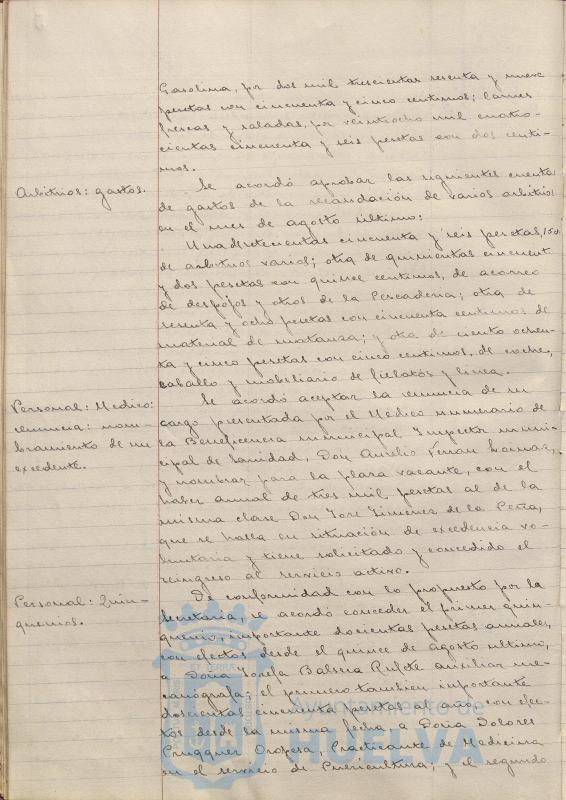 Gasolina, por dos mil trescientas sesenta y nueve
pesetas con cincuenta y cinco centimos; Carnes
frescas y saladas, por veintiocho mil cuatro-
cientas cincuenta y seis pesetas con dos centi-
mos.
Arbitrios: gastos.
Se acordó aprobar las siguientes cuentas
de gastos de la recaudación de varios arbitrios
en el mes de agosto último:
Una de setecientas cincuenta y seis pesetas,
de arbitrios varios; otra de quinientas cincuent
y dos pesetas con quince centimos, de acarreo
de despojos y otros de la Pescaderia; otra de
sesenta y ocho pesetas con cincuenta centimos de
material de matanza; y otra de ciento ochen-
ta y cinco pesetas con cinco centimos, de coche,
caballo y mobiliario de fielatos y linea.
Personal: Medico:
renuncia: nom-
bramiento de un
excedente.
Se acordó aceptar la renuncia de su
cargo presentada por el Medico numerario de
la Beneficencia municipal Inspector muni-
cipal de Sanidad, Don Aurelio
y nombrar para la plaza vacante, con el
haber annal de tres mil pesetas al de la
misma clase Don Jose Jimenez de la Peña,
que se halla en situación de excedencia vo-
luntaria y tiene solicitado y concedido el
reingreso al servicio activo.
Personal: Quin-
quenios.
De conformidad con lo propuesto por la
Secretaria, se acordó conceder el primer quin-
quenio, importante doscientas pesetas annales,
con efectos desde el quince de agosto ultimo,
a Doña Josefa Balseia Rufete auxiliar me-
canógrafa; el primero tambien importante
doscientas cincuenta pesetas al año, con efec-
tos desde la misma fecha a Doña Dolores
Oropesa, Practicante de Medicina
en el servicio de Puericultura; y el segundo
Ayuntamiento de
HUELVA